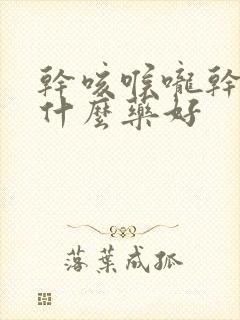 幹咳喉嚨幹
什麼藥好
落葉成孤